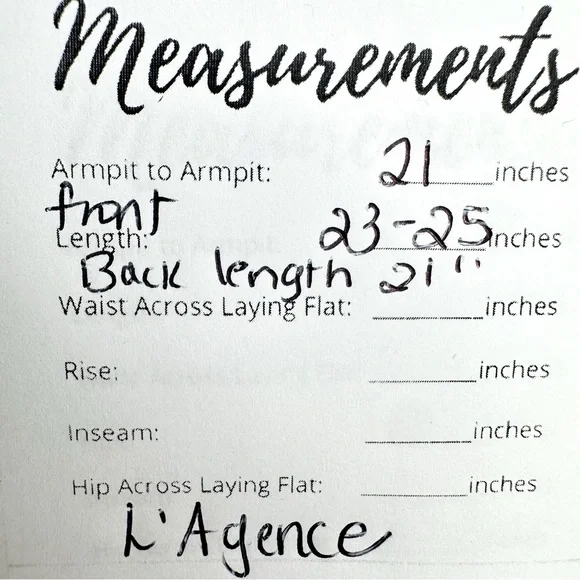 Measurements
Armpit to Armpit: 21 inches
front
Length: 23-25 inches
Back length 21"
Waist Across Laying Flat: ______ inches
Rise: ______ inches
Inseam: ______ inches
Hip Across Laying Flat: ______ inches
L'Agence